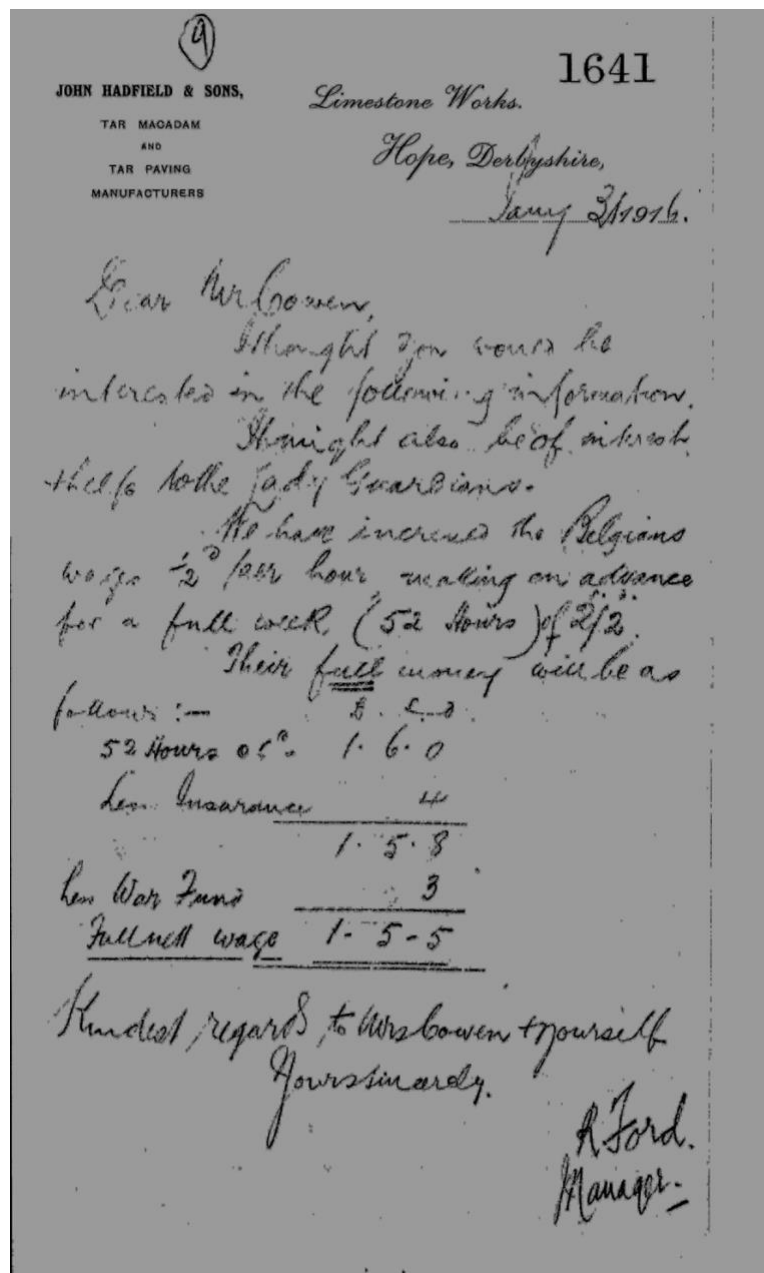 9
1641
JOHN HADFIELD & SONS,
TAR MACADAM
AND
TAR PAVING
MANUFACTURERS
Limestone Works.
Hope, Derbyshire,
Jany 3/1916.
Dear Mr Cowen,
I thought you would be
interested in the following information.
It might also be of interest
to the Lady Guardians.
We have increased the Belgians
wages ½ᴰ per hour, making an advance
for a full week, (52 Hours) of 2/2.
Their full money will be as
follows :—
52 Hours 1. 6. 0
Less Insurance 4
1. 5. 8
Less War Fund 3
Full nett wage 1 - 5 - 5
Kindest regards, to Mrs Cowen + yourself
Yours sincerely.
R Ford.
Manager.